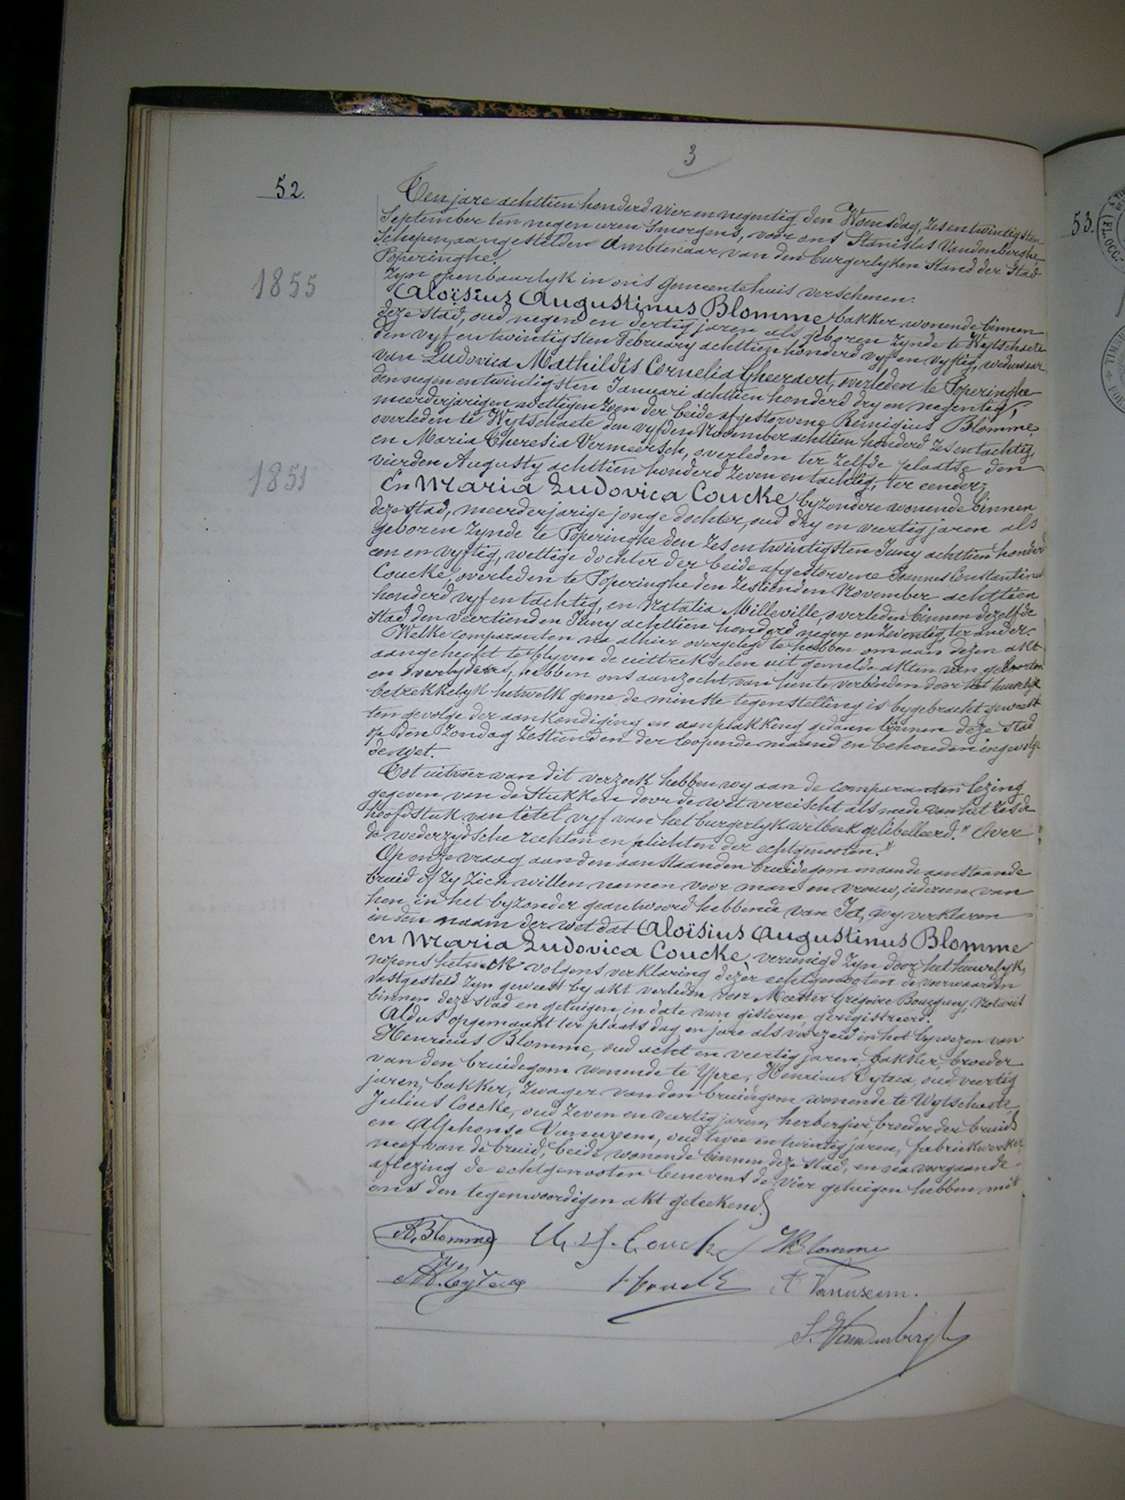 3
52.
Ten jare achttien honderd vier en negentig den Woensdag, zes en twintigsten
September ten negen uren 'smorgens, voor ons Stanislas Vandenberghe
Schepen aangestelden Ambtenaar van den burgerlyken Stand der Stad
Poperinghe.
Zyn openbaarlyk in ons gemeentehuis verschenen:
1855
Aloïsius Augustinus Blomme, bakker, wonende binnen
deze stad, oud negen en dertig jaren als geboren zynde te Wytschaete
den vyf en twintigsten February achttien honderd vyf en vyftig, weduwaar
van Ludovica Mathildis Cornelia Gheeraert, overleden te Poperinghe
den negen en twintigsten Januari achttien honderd dry en negentig,
meerderjarigen wettigen zoon der beide afgestorvene Remigius Blomme,
overleden te Wytschaete den vyfden November achttien honderd zes en tachtig,
en Maria Theresia Vermeersch, overleden ter zelfde plaatse den
vierden Augusty achttien honderd zeven en tachtig, ter eenderz
1851
En Maria Ludovica Coucke, byzondere wonende binnen
deze stad, meerderjarige jonge dochter, oud dry en veertig jaren als
geboren zynde te Poperinghe den zes en twintigsten Juny achttien honderd
een en vyftig, wettige dochter der beide afgestorvene Joannes Constantinus
Coucke, overleden te Poperinghe den zestienden November achttien
honderd vyf en tachtig, en Natalia Milleville, overleden binnen dezelfde
stad den veertienden Juny achttien honderd negen en zeventig, ter ander.
Welke comparanten na alhier overgelegd te hebben om aan dezen akt
aangehecht te blyven de uittreksels uit gemelde akten van geboorten
en overlydens, hebben ons aanzocht van hen te verbinden door het huwelyk
betrekkelyk hetwelk geene de minste tegenstelling is bygebracht geweest
ten gevolge der aankondiging en aanplakking gedaan binnen deze stad
op den zondag zestienden der loopende maand en behouden ingevolge
de wet.
Tot uitvoer van dit verzoek hebben wy aan de comparanten lezing
gegeven van de stukken door de wet vereischt als mede van het zesde
hoofdstuk van titel vyf van het burgerlyk wetboek gelibelleerd: "Over
de wederzydsche rechten en plichten der echtgenooten."
Op onze vraag aan den aanstaanden bruidegom en aan de aanstaande
bruid of zy zich willen nemen voor man en vrouw, iedereen van
hen in het byzonder geantwoord hebbende van Ja, wy verklaren
in den naam der wet dat Aloïsius Augustinus Blomme
en Maria Ludovica Coucke, vereenigd zyn door het huwelyk,
nopens hetwelk volgens verklaring dezer echtgenooten de voorwaarden
vastgesteld zyn geweest by akt verleden voor Meester Grégoire Notaris
binnen deze stad en getuigen, in date van gisteren, geregistreerd.
Aldus opgemaakt ter plaats, dag en jare als voorzeid in het bywezen van
Henricus Blomme, oud acht en veertig jaren, bakker, broeder
van den bruidegom wonende te Ypre, Henricus Cytaea, oud veertig
jaren, bakker, zwager van den bruidegom wonende te Wytschaete,
Julius Coucke, oud zeven en veertig jaren, herbergier, broeder der bruid
en Alphonse Vanuxem, oud twee en twintig jaren, fabriekwerker,
neef van de bruid, beide wonende binnen deze stad, en na voorgaande
aflezing de echtgenooten benevens de vier getuigen hebben met
ons den tegenwoordigen akt geteekend.
A. Blomme M. L. Coucke H Blomme
H. Cytaea J Coucke A Vanuxem.
S. Vandenberghe
53.